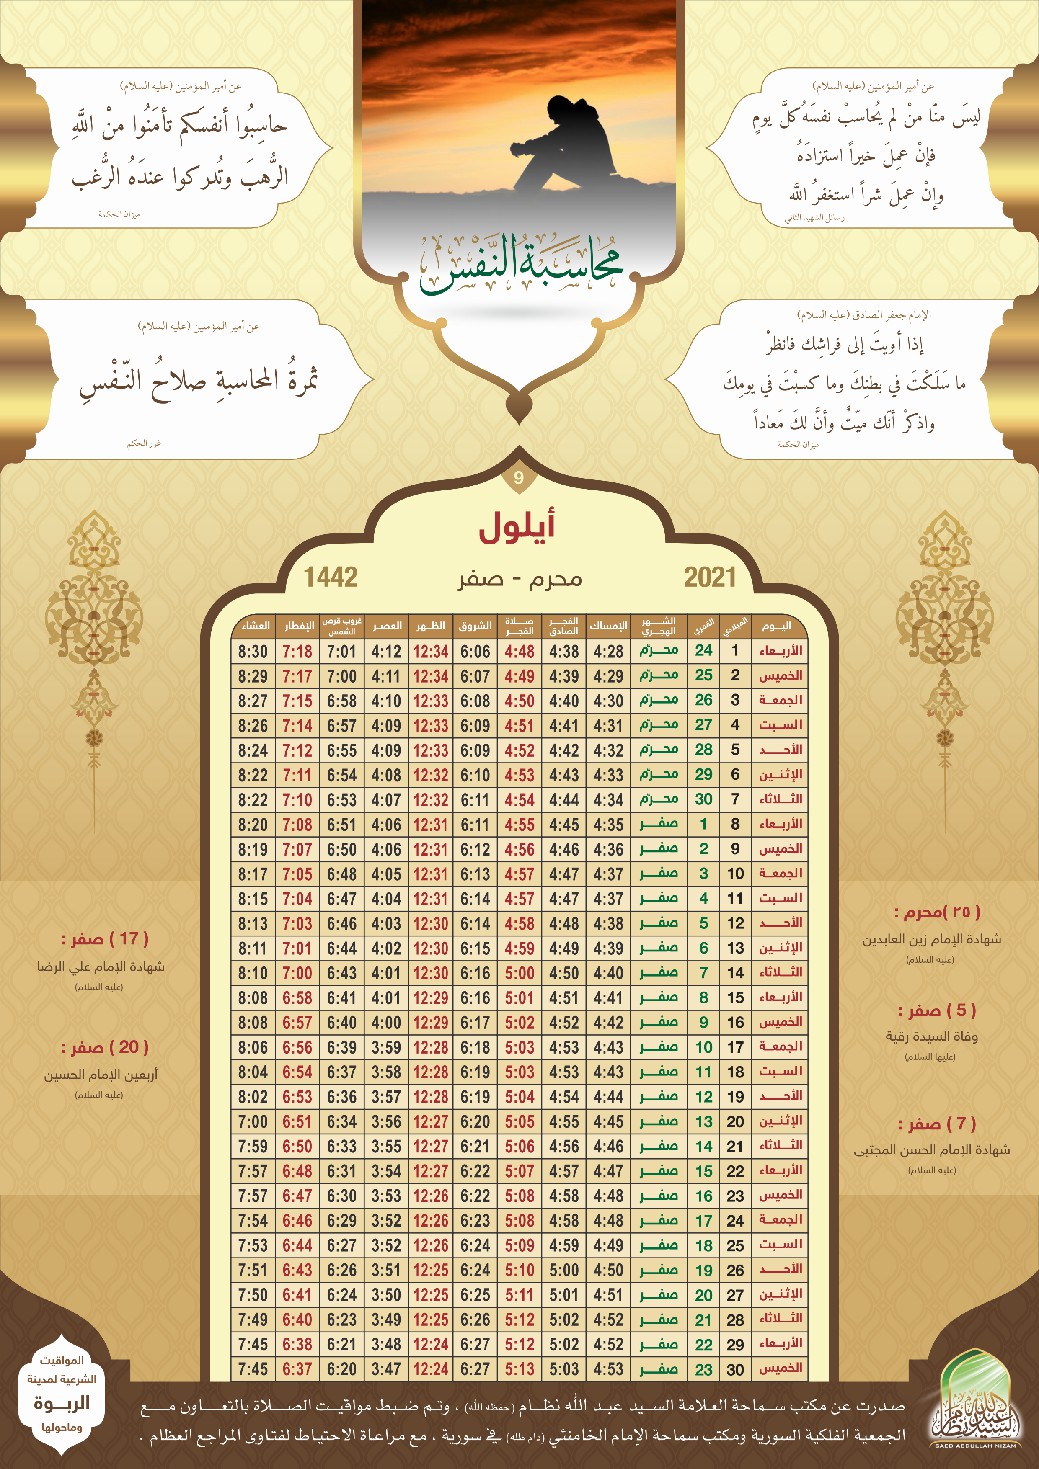 عن أمير المؤمنين (عليه السلام)
ليسَ منّا منْ لم يُحاسبْ نفسَهُ كلَّ يومٍ
فإنْ عمِلَ خيراً استزادَهُ
وإنْ عمِلَ شراً استغفرُ اللّه
رسائل الشهيد الثاني
عن أمير المؤمنين (عليه السلام)
حاسِبُوا أنفسَكم تأمَنُوا منْ اللّهِ
الرُّهبَ وتُدركوا عندَهُ الرُّغب
ميزان الحكمة
محُاسَبَةُ النَّفْسِ
لإمام جعفر الصادق (عليه السلام)
إذا أويتَ إلى فراشِك فانظرْ
ما سَلَكْتَ في بطنِكَ وما كسبْتَ في يومِكَ
واذكرْ أنّك ميّتٌ وأنَّ لكَ مَعاداً
ميزان الحكمة
عن أمير المؤمنين (عليه السلام)
ثمرةُ المحاسبةِ صلاحُ النّفْسِ
غرر الحكم
9
أيلول
2021 محرم - صفر 1442
اليوم الميلادي القمري الشهر الهجري الإمساك الفجر الصادق صلاة الفجر الشروق الظهر العصر غروب قرص الشمس الإفطار العشاء
الأربعاء 1 24 محرم 4:28 4:38 4:48 6:06 12:34 4:12 7:01 7:18 8:30
الخميس 2 25 محرم 4:29 4:39 4:49 6:07 12:34 4:11 7:00 7:17 8:29
الجمعة 3 26 محرم 4:30 4:40 4:50 6:08 12:33 4:10 6:58 7:15 8:27
السبت 4 27 محرم 4:31 4:41 4:51 6:09 12:33 4:09 6:57 7:14 8:26
الأحد 5 28 محرم 4:32 4:42 4:52 6:09 12:33 4:09 6:55 7:12 8:24
الإثنين 6 29 محرم 4:33 4:43 4:53 6:10 12:32 4:08 6:54 7:11 8:22
الثلاثاء 7 30 محرم 4:34 4:44 4:54 6:11 12:32 4:07 6:53 7:10 8:22
الأربعاء 8 1 صفر 4:35 4:45 4:55 6:11 12:31 4:06 6:51 7:08 8:20
الخميس 9 2 صفر 4:36 4:46 4:56 6:12 12:31 4:06 6:50 7:07 8:19
الجمعة 10 3 صفر 4:37 4:47 4:57 6:13 12:31 4:05 6:48 7:05 8:17
السبت 11 4 صفر 4:37 4:47 4:57 6:14 12:31 4:04 6:47 7:04 8:15
الأحد 12 5 صفر 4:38 4:48 4:58 6:14 12:30 4:03 6:46 7:03 8:13
الإثنين 13 6 صفر 4:39 4:49 4:59 6:15 12:30 4:02 6:44 7:01 8:11
الثلاثاء 14 7 صفر 4:40 4:50 5:00 6:16 12:30 4:01 6:43 7:00 8:10
الأربعاء 15 8 صفر 4:41 4:51 5:01 6:16 12:29 4:01 6:41 6:58 8:08
الخميس 16 9 صفر 4:42 4:52 5:02 6:17 12:29 4:00 6:40 6:57 8:08
الجمعة 17 10 صفر 4:43 4:53 5:03 6:18 12:28 3:59 6:39 6:56 8:06
السبت 18 11 صفر 4:43 4:53 5:03 6:19 12:28 3:58 6:37 6:54 8:04
الأحد 19 12 صفر 4:44 4:54 5:04 6:19 12:28 3:57 6:36 6:53 8:02
الإثنين 20 13 صفر 4:45 4:55 5:05 6:20 12:27 3:56 6:34 6:51 7:00
الثلاثاء 21 14 صفر 4:46 4:56 5:06 6:21 12:27 3:55 6:33 6:50 7:59
الأربعاء 22 15 صفر 4:47 4:57 5:07 6:22 12:27 3:54 6:31 6:48 7:57
الخميس 23 16 صفر 4:48 4:58 5:08 6:22 12:26 3:53 6:30 6:47 7:57
الجمعة 24 17 صفر 4:48 4:58 5:08 6:23 12:26 3:52 6:29 6:46 7:54
السبت 25 18 صفر 4:49 4:59 5:09 6:24 12:26 3:52 6:27 6:44 7:53
الأحد 26 19 صفر 4:50 5:00 5:10 6:24 12:25 3:51 6:26 6:43 7:51
الإثنين 27 20 صفر 4:51 5:01 5:11 6:25 12:25 3:50 6:24 6:41 7:50
الثلاثاء 28 21 صفر 4:52 5:02 5:12 6:26 12:25 3:49 6:23 6:40 7:49
الأربعاء 29 22 صفر 4:52 5:02 5:12 6:27 12:24 3:48 6:21 6:38 7:45
الخميس 30 23 صفر 4:53 5:03 5:13 6:27 12:24 3:47 6:20 6:37 7:45
(٢٥ )محرم :
شهادة الإمام زين العابدين
(عليه السلام)
( 5 ) صفر :
وفاة السيدة رقية
(عليها السلام)
( 7 ) صفر :
شهادة الإمام الحسن المجتبى
(عليه السلام)
( 17 ) صفر :
شهادة الإمام علي الرضا
(عليه السلام)
( 20 ) صفر :
أربعين الإمام الحسين
(عليه السلام)
المواقيت
الشرعية لمدينة
الربوة
وماحولها
صدرت عن مكتب سماحة العلامة السيد عبد الله نظام (حفظه الله) ، وتم ضبط مواقيت الصلاة بالتعاون مع
الجمعية الفلكية السورية ومكتب سماحة الإمام الخامنئي (دام ظله) في سورية ، مع مراعاة الاحتياط لفتاوى المراجع العظام .
SAED ABDULLAH NIZAM